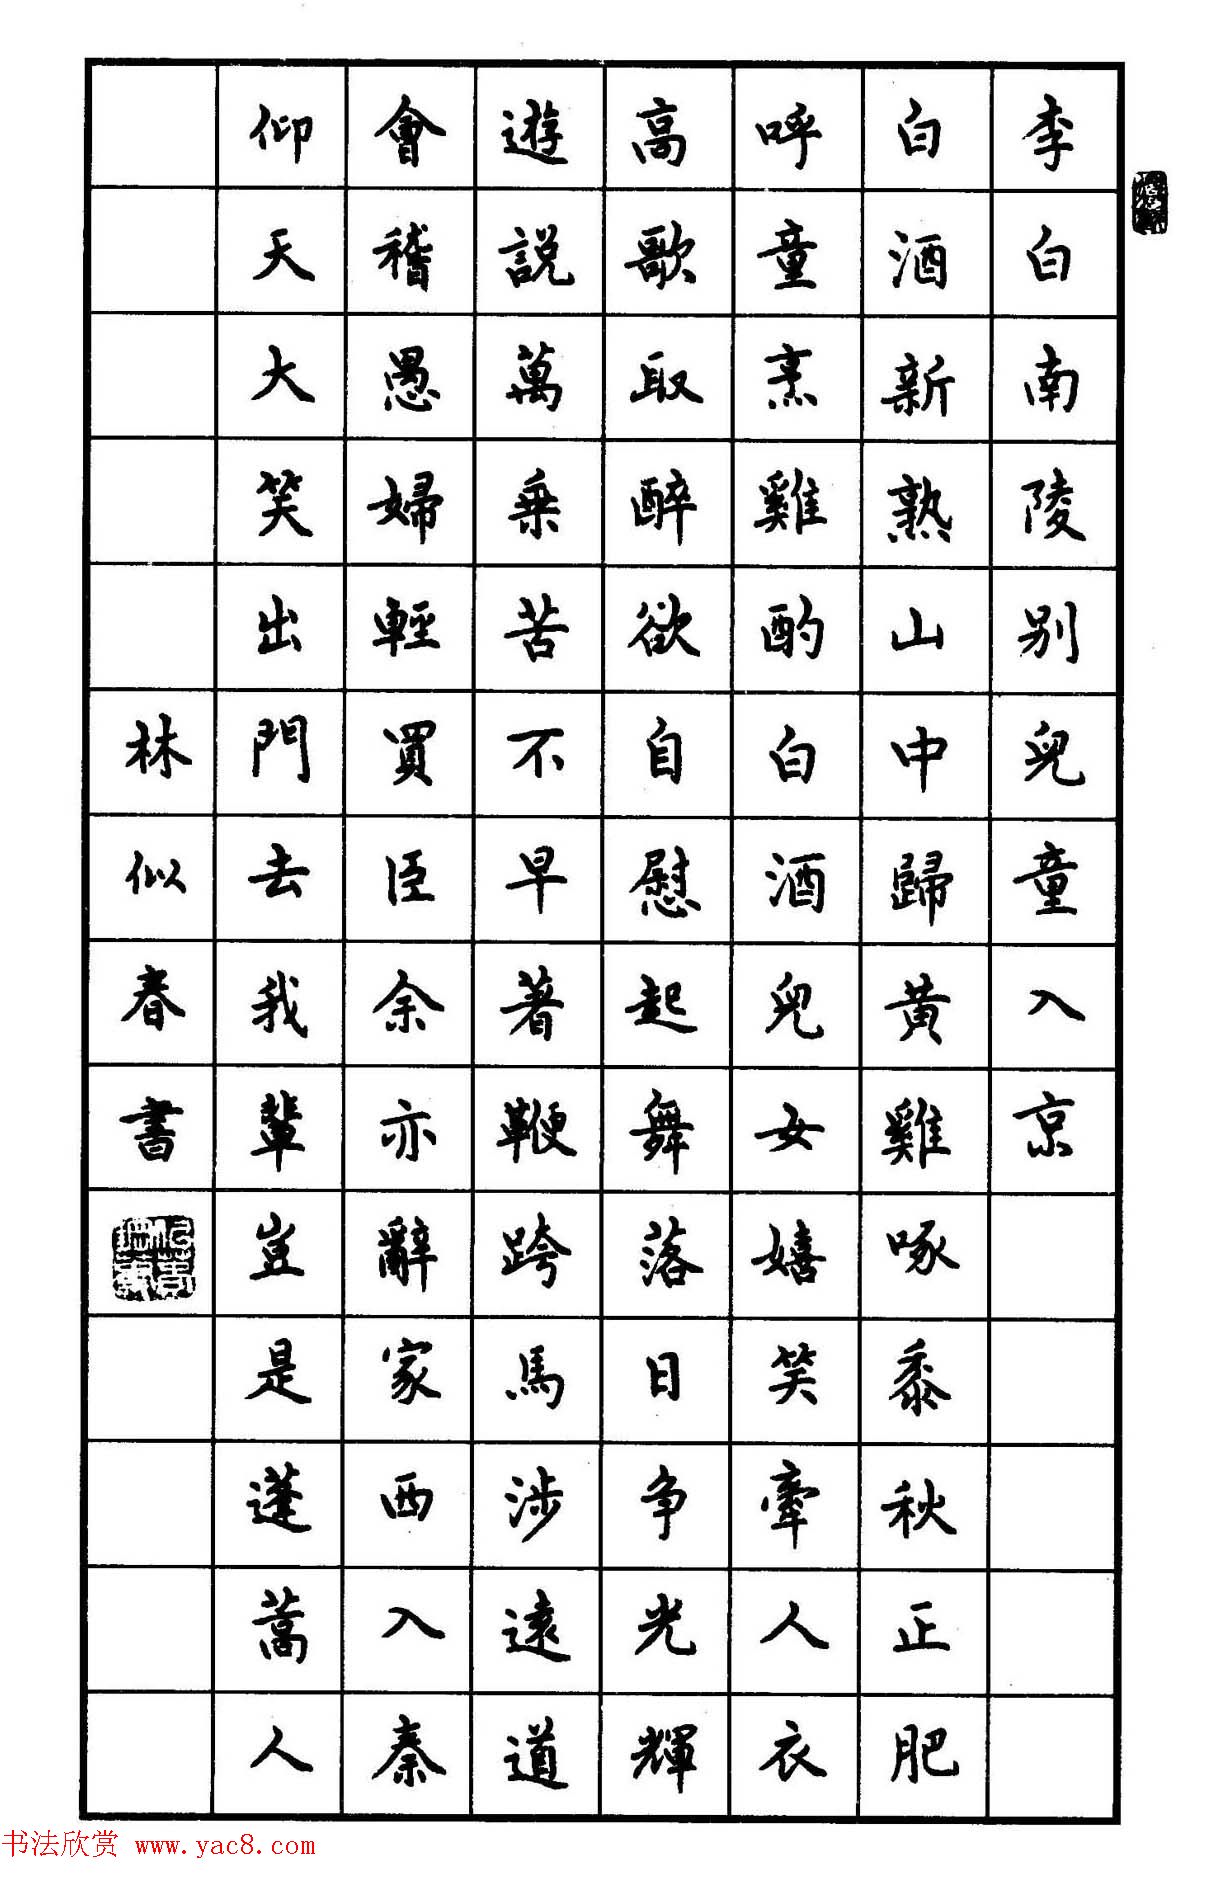 李白南陵别兒童入京
白酒新熟山中歸黃雞啄黍秋正肥
呼童烹雞酌白酒兒女嬉笑牽人衣
高歌取醉欲自慰起舞落日争光輝
遊説萬乗苦不早著鞭跨馬涉遠道
會稽愚婦輕買臣余亦辭家西入秦
仰天大笑出門去我輩豈是蓬蒿人
林似春書
书法欣赏 www.yac8.com